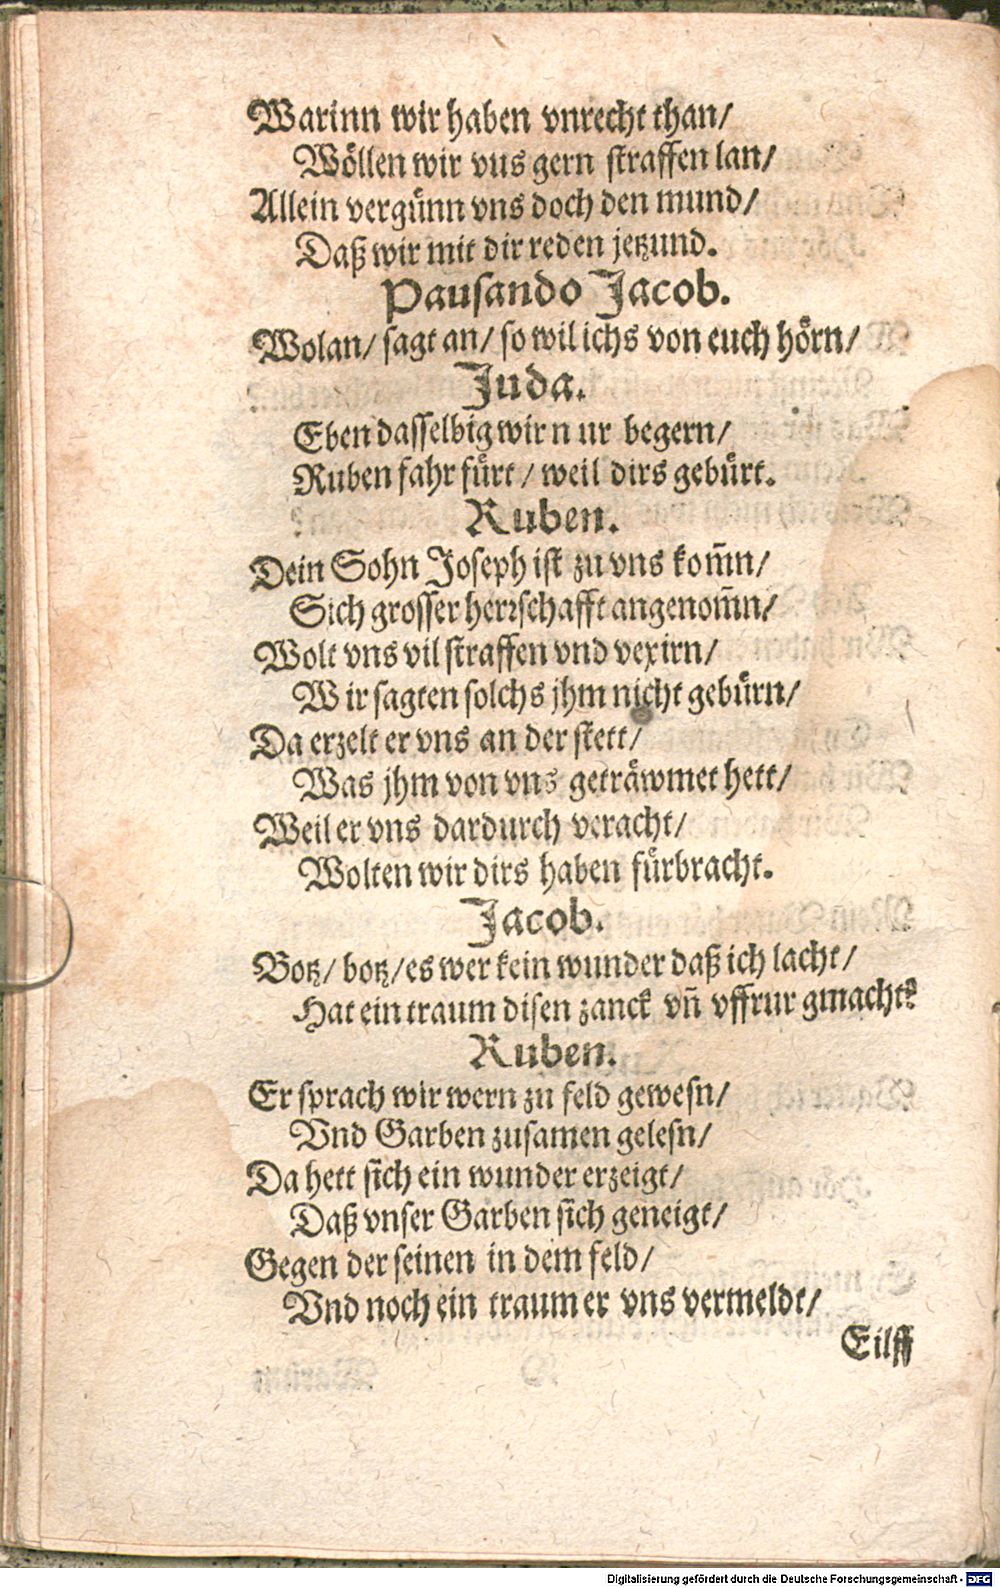 Warinn wir haben vnrecht than/
Wöllen wir vns gern straffen lan/
Allein vergünn vns doch den mund/
Daß wir mit dir reden jetzund.
Pausando Jacob.
Wolan/ sagt an/ so wil ichs von euch hörn/
Juda.
Eben dasselbig wir nur begern/
Ruben fahr fürt/ weil dirs gebürt.
Ruben.
Dein Sohn Joseph ist zu vns kom̃n/
Sich grosser herrschafft angenom̃n/
Wolt vns vil straffen vnd vexirn/
Wir sagten solchs jhm nicht gebürn/
Da erzelt er vns an der stett/
Was jhm von vns geträwmet hett/
Weil er vns dardurch veracht/
Wolten wir dirs haben fürbracht.
Jacob.
Botz/ botz/ es wer kein wunder daß ich lacht/
Hat ein traum disen zanck vñ vffrur gmacht?
Ruben.
Er sprach wir wern zu feld gewesn/
Vnd Garben zusamen gelesn/
Da hett sich ein wunder erzeigt/
Daß vnser Garben sich geneigt/
Gegen der seinen in dem feld/
Vnd noch ein traum er vns vermeldt/
Eilff
Digitalisierung gefördert durch die Deutsche Forschungsgemeinschaft - DFG